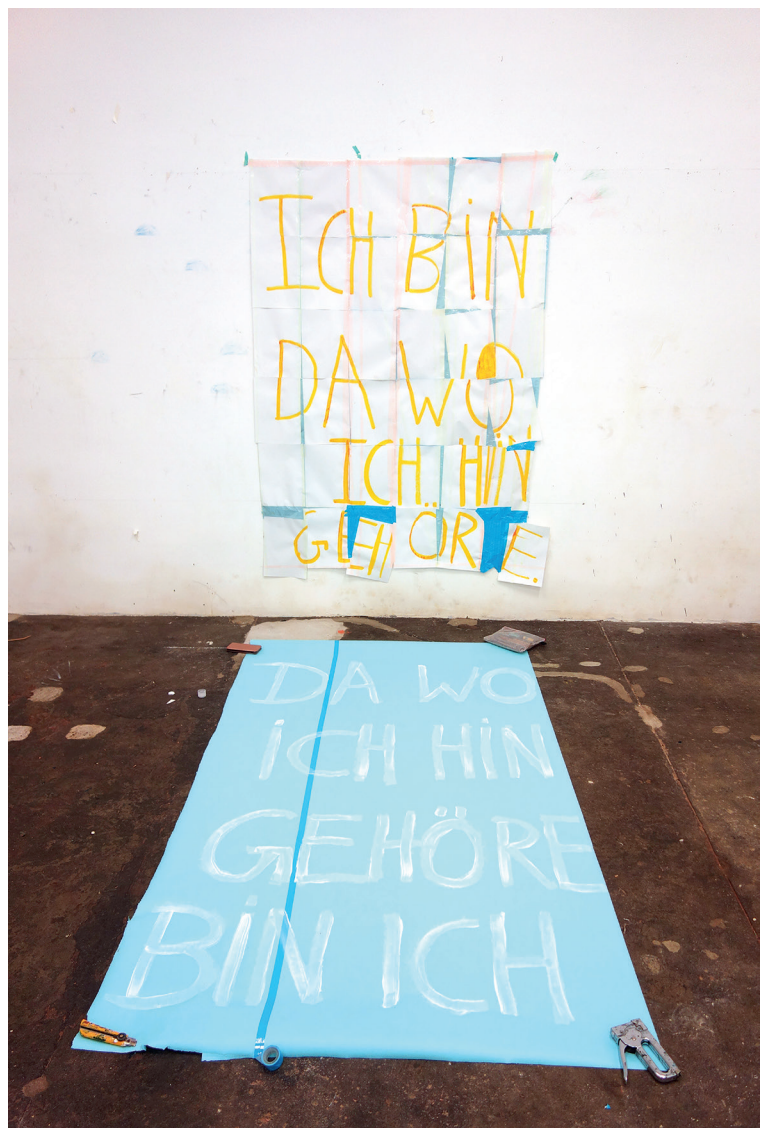 ICH BIN
DA WO
ICH HIN
GEHÖRE.
DA WO
ICH HIN
GEHÖRE
BIN ICH